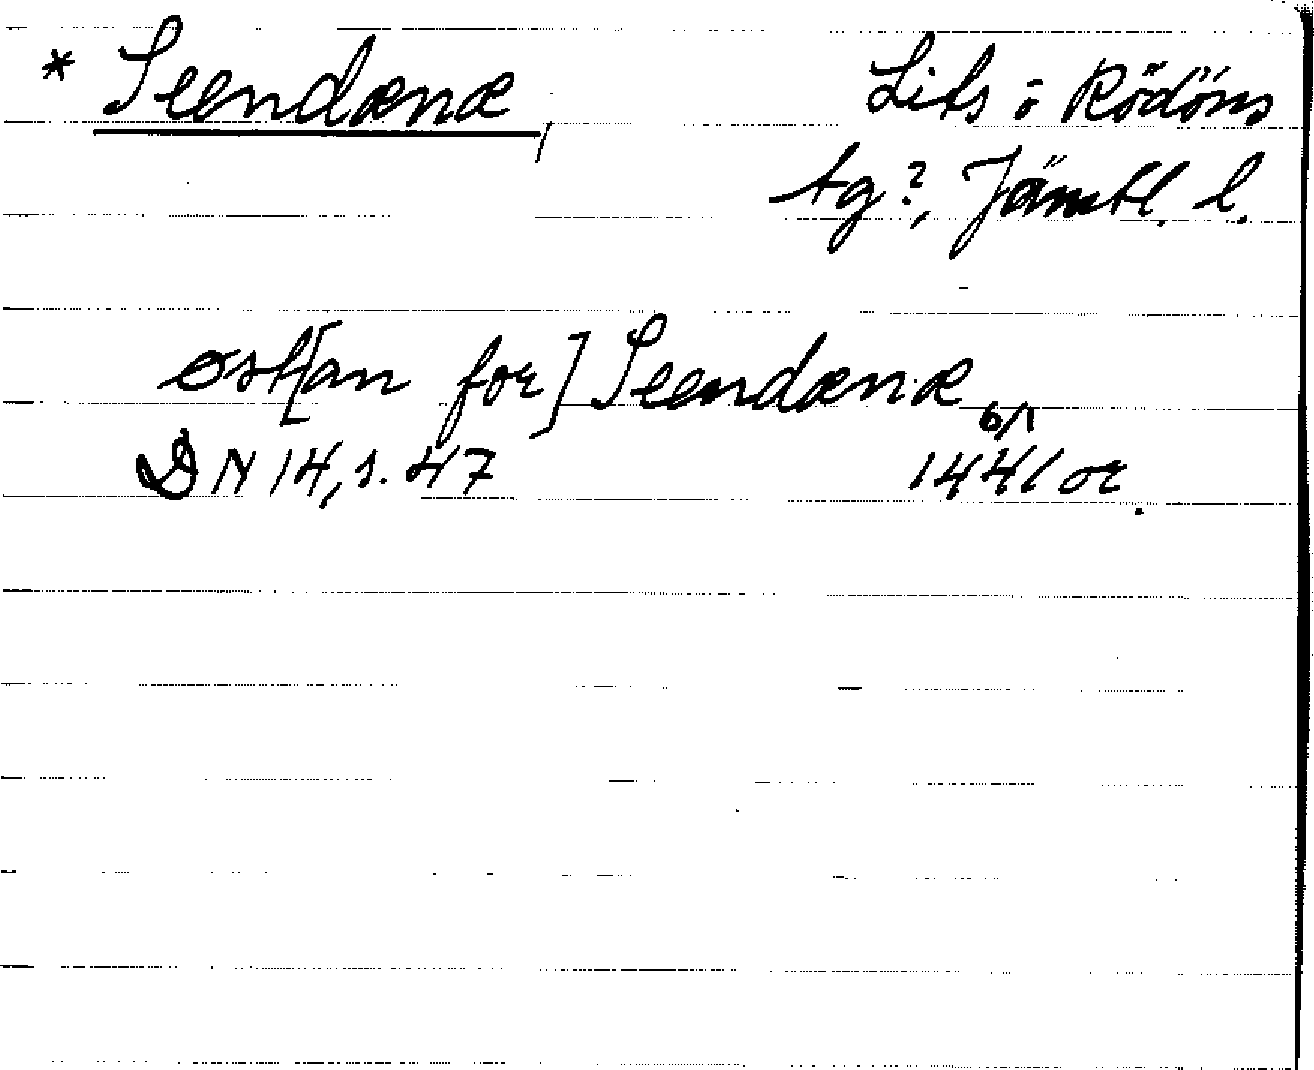 * Seendænæ, Lits o Rödöns
tg?, Jämtl. l.
øst[an for] Seendænæ
6/1
DN 14, s. 47 1441 or.